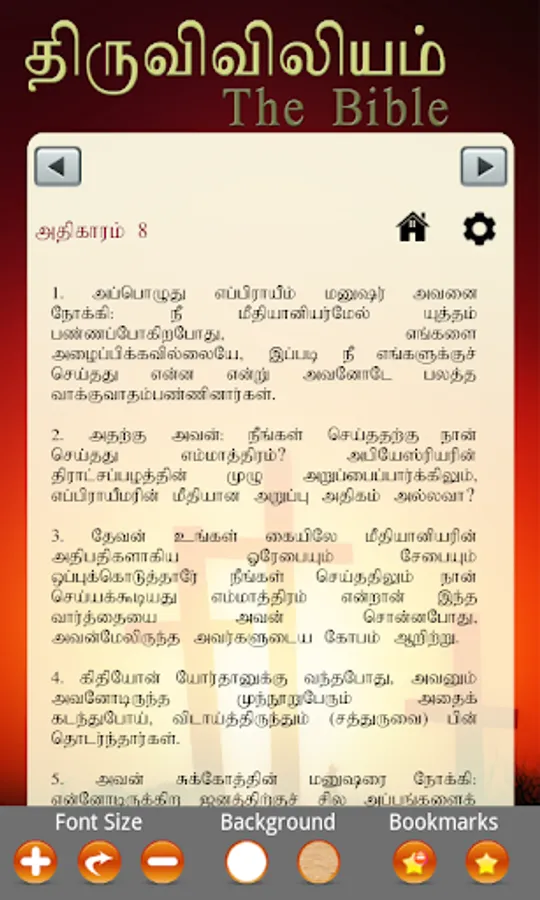 திருவிவிலியம்
The Bible
அதிகாரம் 8
1. அப்பொழுது எப்பிராயீம் மனுஷர் அவனை
நோக்கி: நீ மீதியானியர்மேல் யுத்தம்
பண்ணப்போகிறபோது, எங்களை
அழைப்பிக்கவில்லையே, இப்படி நீ எங்களுக்குச்
செய்தது என்ன என்று அவனோடே பலத்த
வாக்குவாதம்பண்ணினார்கள்.
2. அதற்கு அவன்: நீங்கள் செய்ததற்கு நான்
செய்தது எம்மாத்திரம்? அபியேஸ்ரியரின்
திராட்சப்பழத்தின் முழு அறுப்பைப்பார்க்கிலும்,
எப்பிராயீமரின் மீதியான அறுப்பு அதிகம் அல்லவா?
3. தேவன் உங்கள் கையிலே மீதியானியரின்
அதிபதிகளாகிய ஒரேபையும் சேபையும்
ஒப்புக்கொடுத்தாரே நீங்கள் செய்ததிலும் நான்
செய்யக்கூடியது எம்மாத்திரம் என்றான் இந்த
வார்த்தையை அவன் சொன்னபோது,
அவன்மேலிருந்த அவர்களுடைய கோபம் ஆறிற்று.
4. கிதியோன் யோர்தானுக்கு வந்தபோது, அவனும்
அவனோடிருந்த முந்நூறுபேரும் அதைக்
கடந்துபோய், விடாய்த்திருந்தும் (சத்துருவை) பின்
தொடர்ந்தார்கள்.
5. அவன் சுக்கோத்தின் மனுஷரை நோக்கி:
என்னோடிருக்கிற ஜனத்திற்குச் சில அப்பங்களைக்
Font Size Background Bookmarks